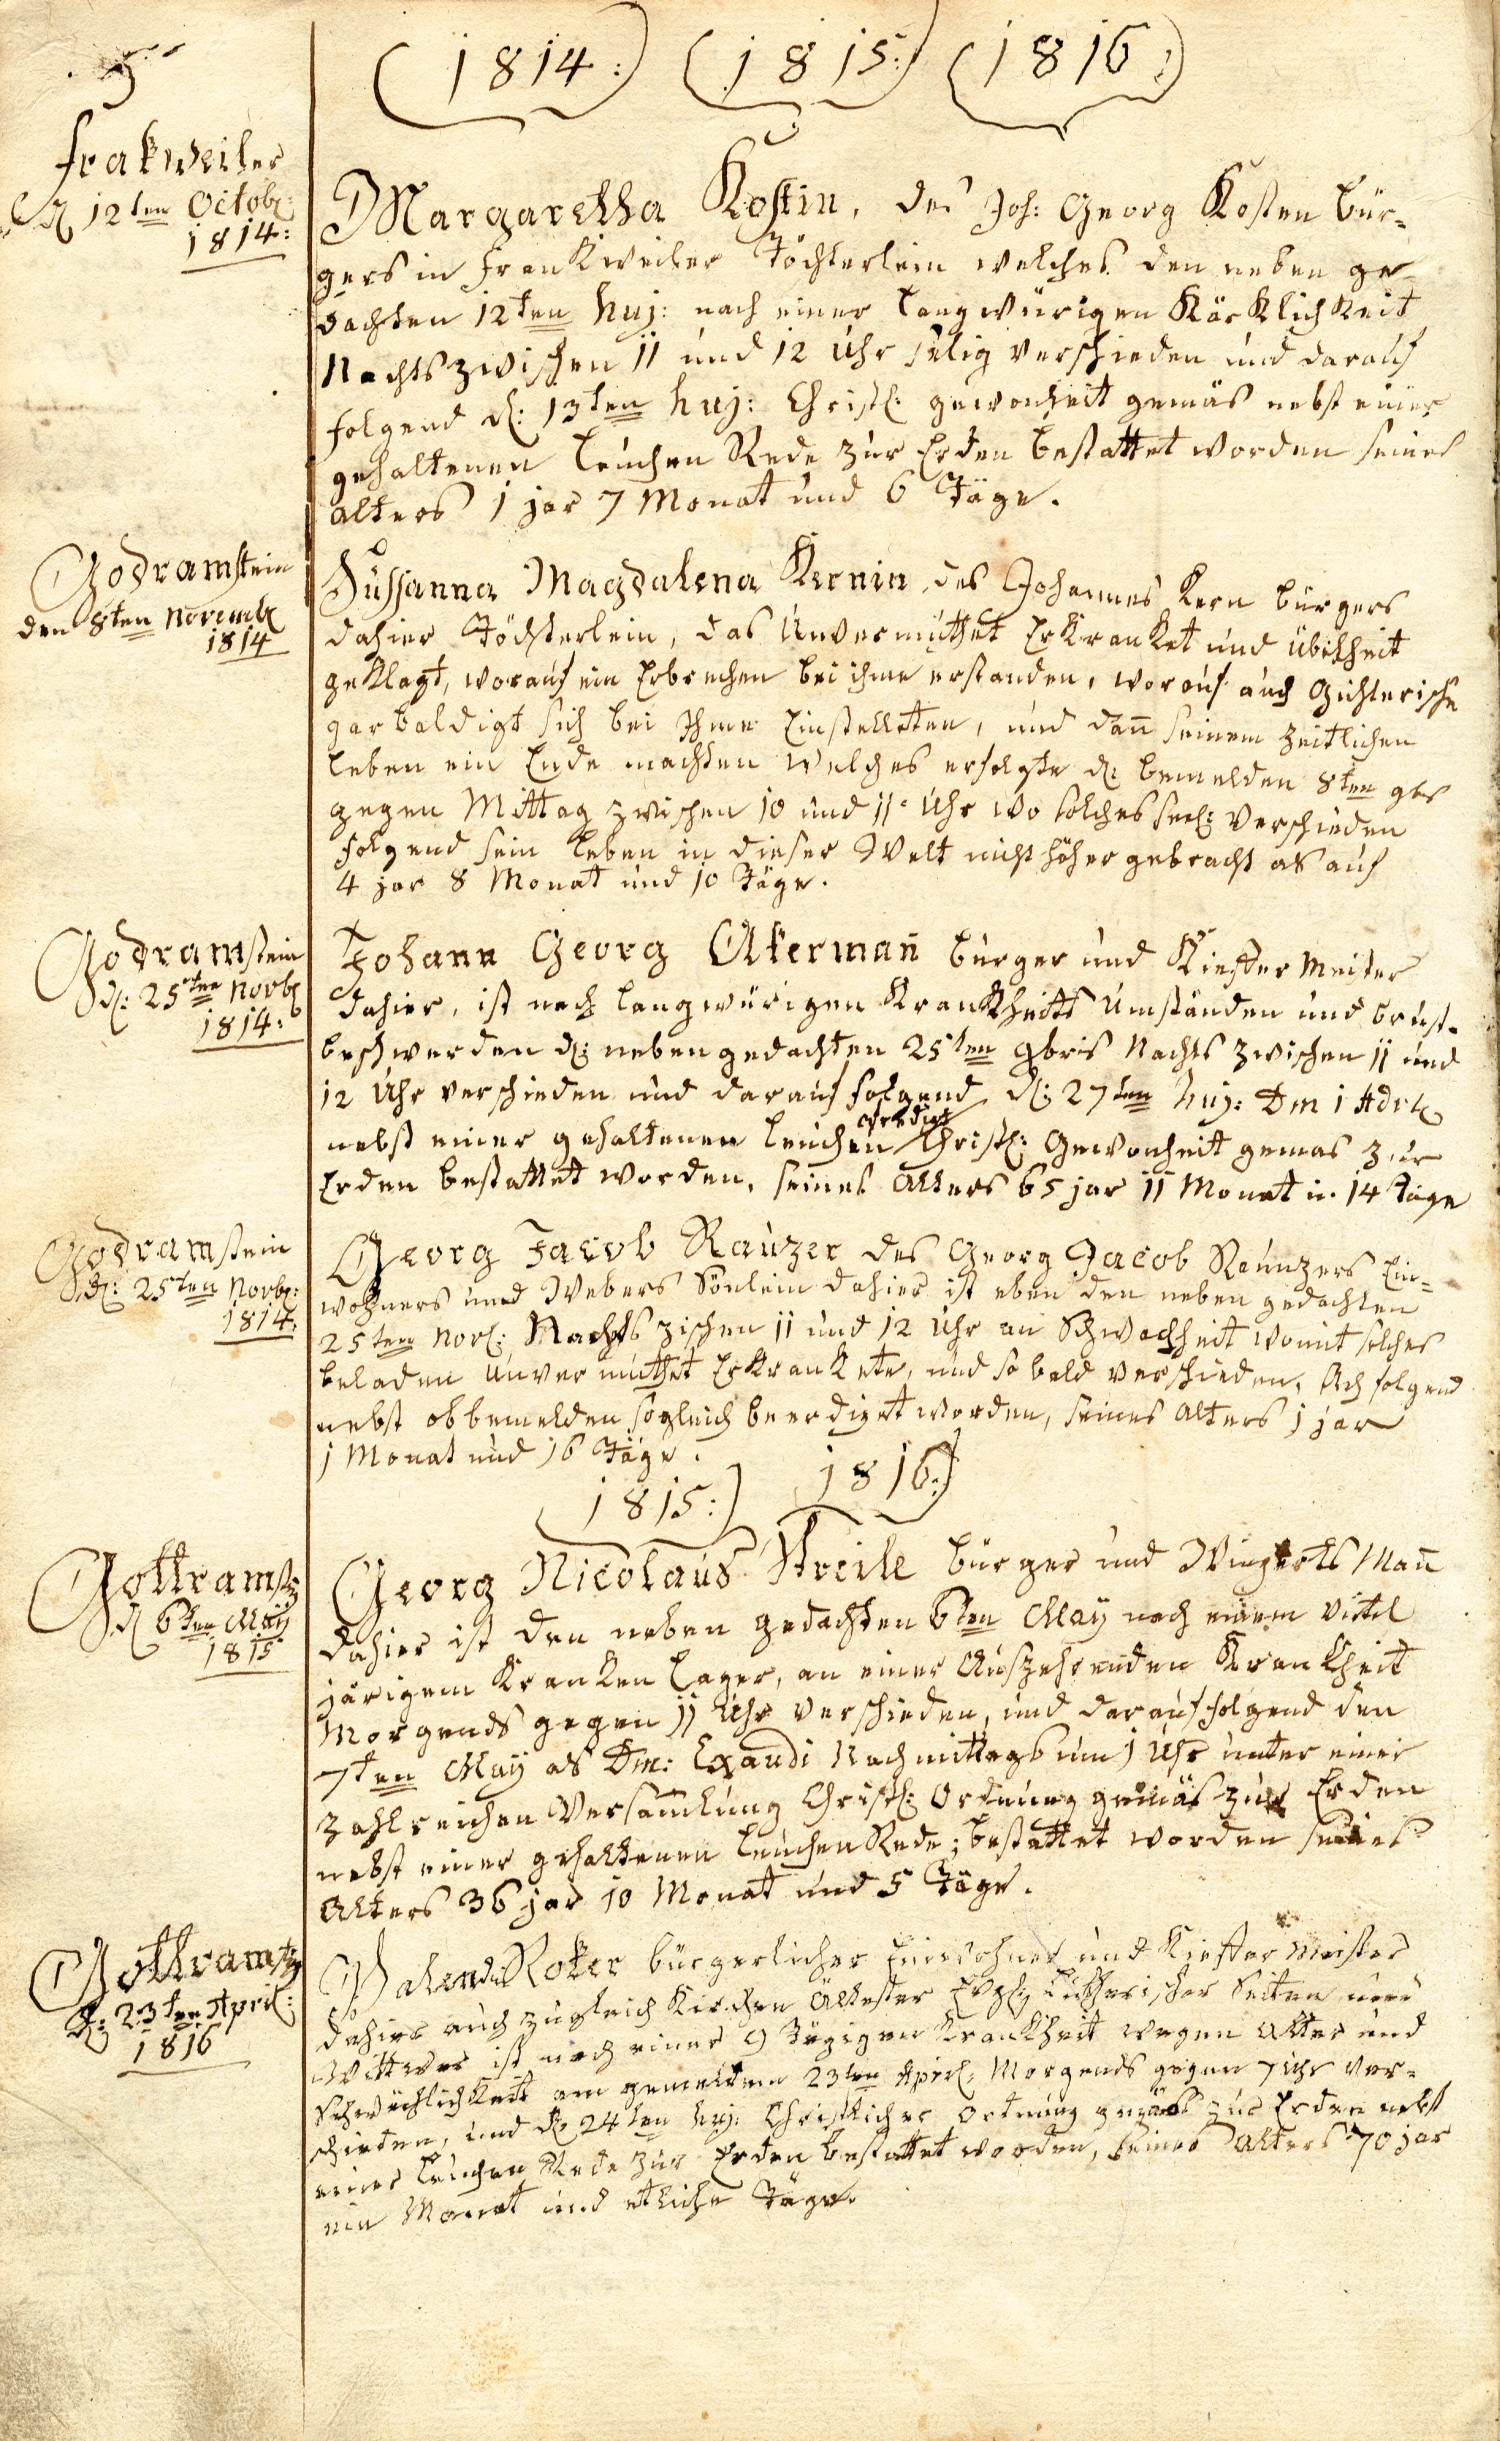 5
1814: 1815: 1816:
frakweiler
d 12ten Octobr:
1814:
Margaretha Kostin, des Joh: Georg Kosten bür=
gers in frankweiler Töchterlein welches den neben ge-
dachten 12ten huj: nach einer langwürigen Kärklichkeit
Nachts zwischen 11 und 12 Uhr selig verschieden und darauf
folgend d: 13ten huj: Christl: gewonheit gemäs nebst einer
gehaltenen Leuchen Rede zur Erden bestattet worden seines
alters 1 jar 7 Monat und 6 Täge.
Godramstein
den 8ten Novembr
1814
Sussanna Magdalena Kernin, des Johannes Kern bürgers
dahier Töchterlein, das Unvermuthet Erkranket und übelheit
geklagt, worauf ein Erbrechen bei ihme erstanden, worauf auch Gichterische
gar baldigt sich bei Ihme Einstelleten, und dan̄ seinem zeitlichen
leben ein Ende machten welches erfolgte d: bemelden 8ten gbr
gegen Mittag zwischen 10 und 11: Uhr wo solches seel: verschieden
folgend sein leben in dieser Welt nicht höher gebracht as auf
4 jar 8 Monat und 10 Täge.
Godramstein
d: 25ten Novbr
1814:
Johann Georg Akerman̄ bürger und Kieffer Meister
dahier, ist nach langwürigen Krankheits Umständen und brust-
beschwerden d: neben gedachten 25ten gbris Nachts zwischen 11 und
12 Uhr verschieden und darauf folgend d: 27ten huj: Dm 1 Adv:
nebst einer gehaltenen Leuchen predigt Christl: Gewonheit gemas zur
Erden bestattet worden, seines Alters 65 jar 11 Monat u. 14 Täge
Godramstein
d: 25ten Novbr:
1814:
Georg Jacob Rauzer des Georg Jacob Raunzers Ein=
wohners und Webers Sönlein dahier ist eben den neben gedachten
25ten Nov: Nachts zischen 11 und 12 Uhr an Schwachheit womit solches
beladen Unvermuthet Erkrankete, und so bald verschieden, Ach folgend
nebst obbemelden sogleich beerdiget worden, seines alters 1 jar
1 Monat und 16 Täge.
1815: 1816:
Gottramst
d 6ten May
1815
Georg Nicolaus Streile bürger und Wingerts Man̄
dahier ist den neben gedachten 6ten May nach einem viertel
järigem Kranken Lager, an einer Auszehrenden Krankheit
Morgends gegen 11 Uhr verschieden, und darauf folgend den
7ten May as Dm: Exaudi Nachmittags um 1 Uhr unter einer
zahlreichen Versamlung Christl: Ordnung gemäs zur Erden
nebst einer gehaltenen Leuchen Rede; bestattet worden seines
Alters 36 jar 10 Monat und 5 Täge.
Gottramst
d: 23ten April:
1816
Roker bürgerlicher Einwohner und Kieffer Meister
dahier auch zugleich Kirchen Ältester Evgl: Lutherischer Seiten und
Wittwer ist nach einer 9 Tägigen Krankheit wegen Alter und
Schwächlichkeit am gemelten 23ten April: Morgends gegen 7 Uhr ver=
schieden, und d 24ten huj: Christlicher Ordnung gemäß zur Erden nebst
einer Leuchen Rede zur Erden bestattet worden, seines Alters 70 jar
ein Monat und etliche Täge.